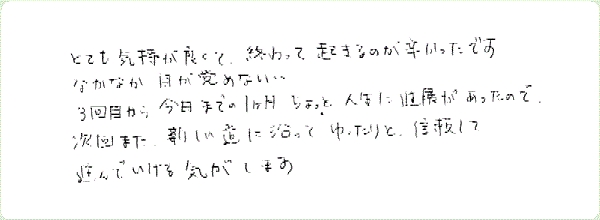 とても気持が良くて、終わって起きるのが辛かったです
なかなか目が覚めない…
3回目から今日までの1ヶ月ちょっと、人生に進展があったので、
次回また、新しい道に沿ってゆったりと、信頼して
進んでいける気がします